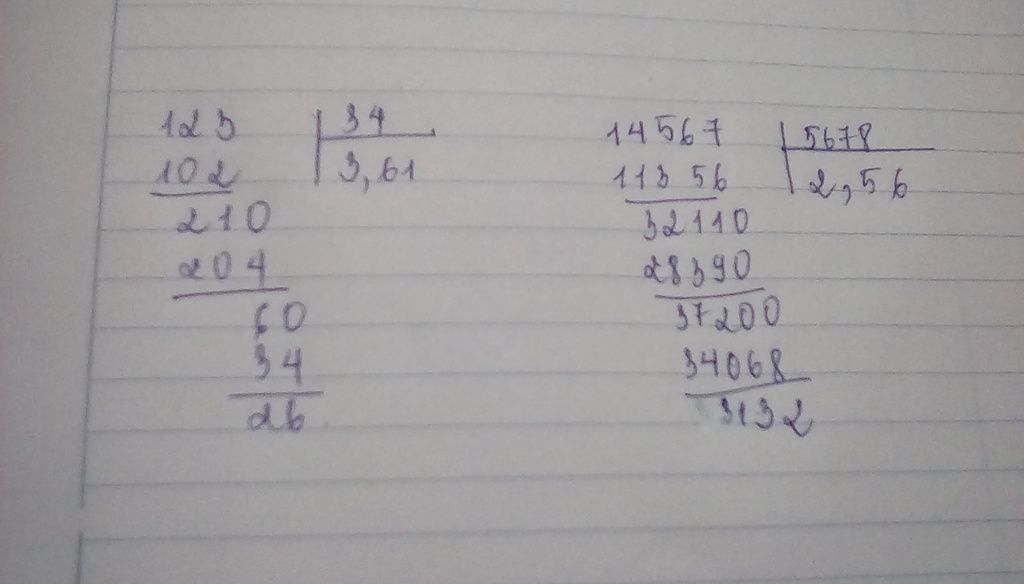 123 34
102 3,61
210
204
60
34
26
14567 5678
11356 2,56
32110
28390
37200
34068
3132